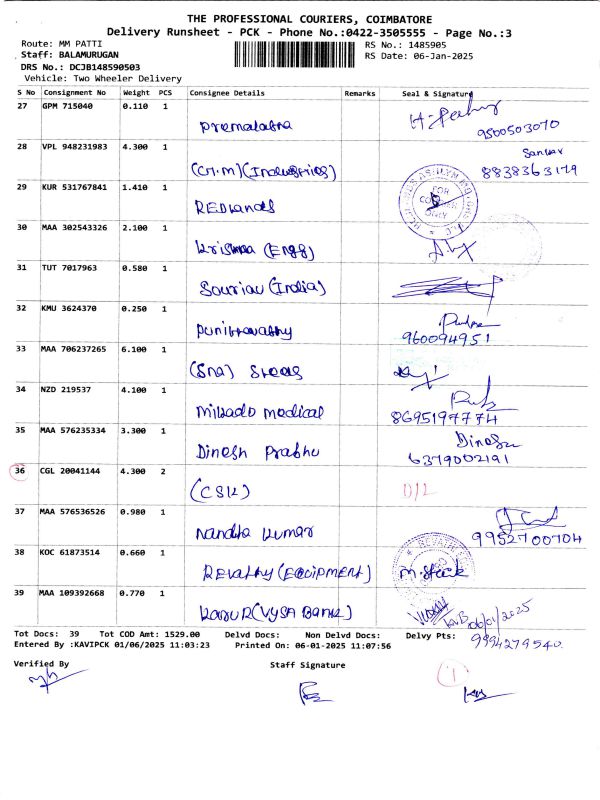 THE PROFESSIONAL COURIERS, COIMBATORE
Delivery Runsheet - PCK - Phone No.:0422-3505555 - Page No.:3
Route: MM PATTI
RS No.: 1485905
Staff: BALAMURUGAN
RS Date: 06-Jan-2025
DRS No.: DCJB148590503
Vehicle: Two Wheeler Delivery
S No Consignment No Weight PCS Consignee Details Remarks Seal & Signature
27 GPM 715040 0.110 1
9500503070
28 VPL 948231983 4.300 1
(CH.M) (Industries) 8838363179
29 KUR 531767841 1.410 1
REDLands FOR ONLY
30 MAA 302543326 2.100 1
Krishna (Engg)
31 TUT 7017963 0.580 1
Souriau (India)
32 KMU 3624370 0.250 1
960094951
33 MAA 706237265 6.100 1
(Sna) Steels
34 NZD 219537 4.100 1
Mikado medical 8695197774
35 MAA 576235334 3.300 1
Dinesh
Dinesh Prabhu 6379002191
36 CGL 20041144 4.300 2
D/L
37 MAA 576536526 0.980 1
Nandha Kumar 9952700704
38 KOC 61873514 0.660 1
Revathy (EQUIPMENT)
39 MAA 109392668 0.770 1
KARUR (VYSA Bank) 06/01/2025
Tot Docs: 39 Tot COD Amt: 1529.00 Delvd Docs: Non Delvd Docs: Delvy Pts: 9994279540.
Entered By :KAVIPCK 01/06/2025 11:03:23 Printed On: 06-01-2025 11:07:56
Verified By Staff Signature
1